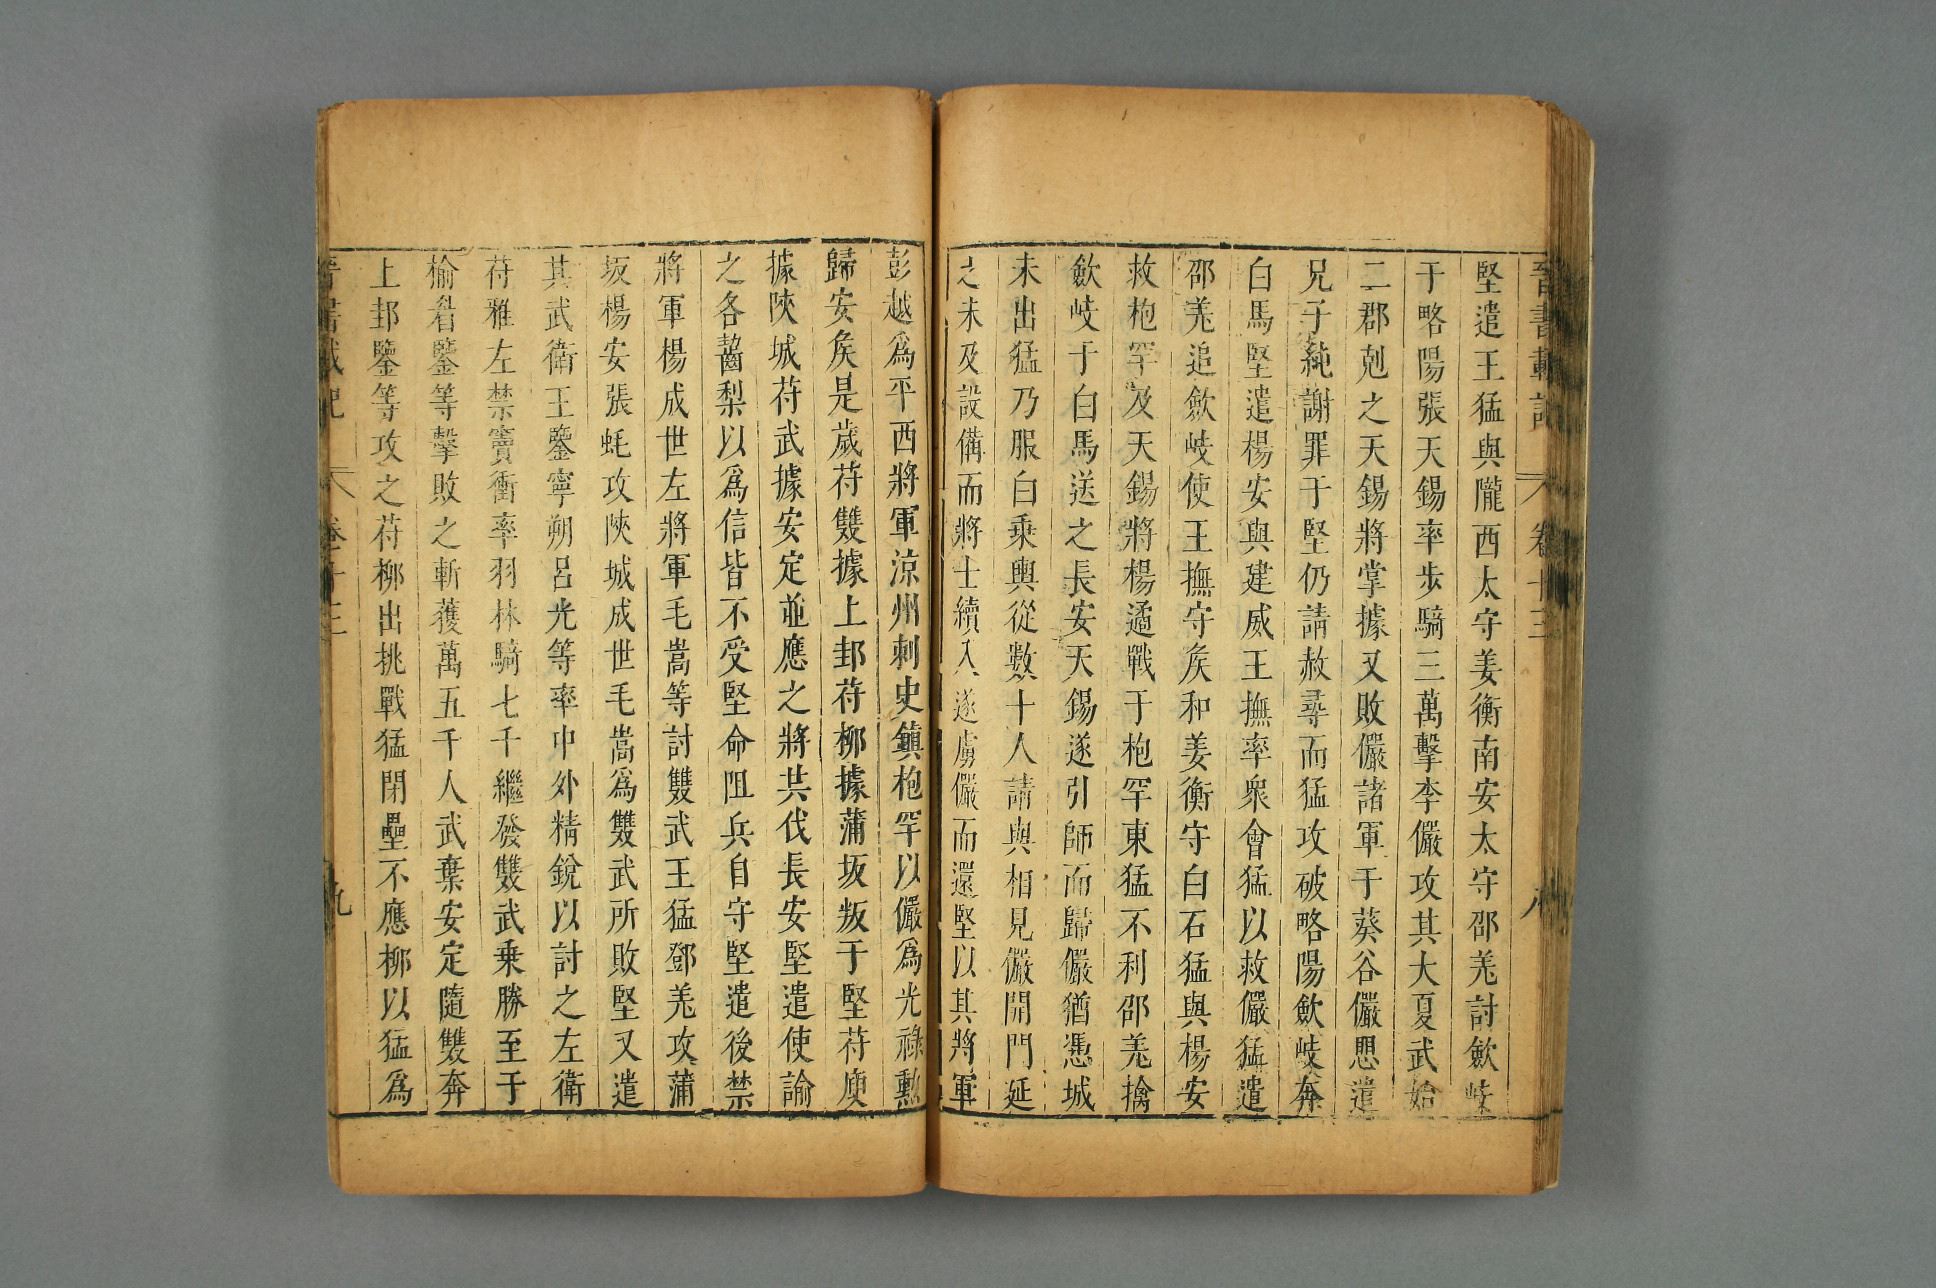 晉書載記 卷十三 八
堅遣王猛與隴西太守姜衡南安太守邵羌討斂岐
于略陽張天錫率步騎三萬擊李儼攻其大夏武始
二郡剋之天錫將掌據又敗儼諸軍于葵谷儼思遣
兄子純謝罪于堅仍請赦尋而猛攻破略陽斂岐奔
白馬堅遣楊安與建威王撫率眾會猛以救儼猛遣
邵羌追斂岐使王撫守矦和姜衡守白石猛與楊安
救枹罕及天錫將楊遹戰于枹罕東猛不利邵羌擒
斂岐于白馬送之長安天錫遂引師而歸儼猶憑城
未出猛乃服白乗輿從數十人請與相見儼開門延
之未及設備而將士續入遂虜儼而還堅以其將軍
彭越爲平西將軍涼州刺史鎮枹罕以儼爲光祿勲
歸安矦是歲苻雙據上邽苻柳據蒲坂叛于堅苻庾
據陝城苻武據安定並應之將共伐長安堅遣使諭
之各齧梨以爲信皆不受堅命阻兵自守堅遣後禁
將軍楊成世左將軍毛嵩等討雙武王猛鄧羌攻蒲
坂楊安張蚝攻陝城成世毛嵩爲雙武所敗堅又遣
其武衛王鑒寧朔呂光等率中外精銳以討之左衛
苻雅左禁竇衝率羽林騎七千繼發雙武乗勝至于
榆眉鑒等擊敗之斬獲萬五千人武棄安定隨雙奔
上邽鑒等攻之苻柳出挑戰猛閉壘不應柳以猛爲
晉書載記 卷十三 九